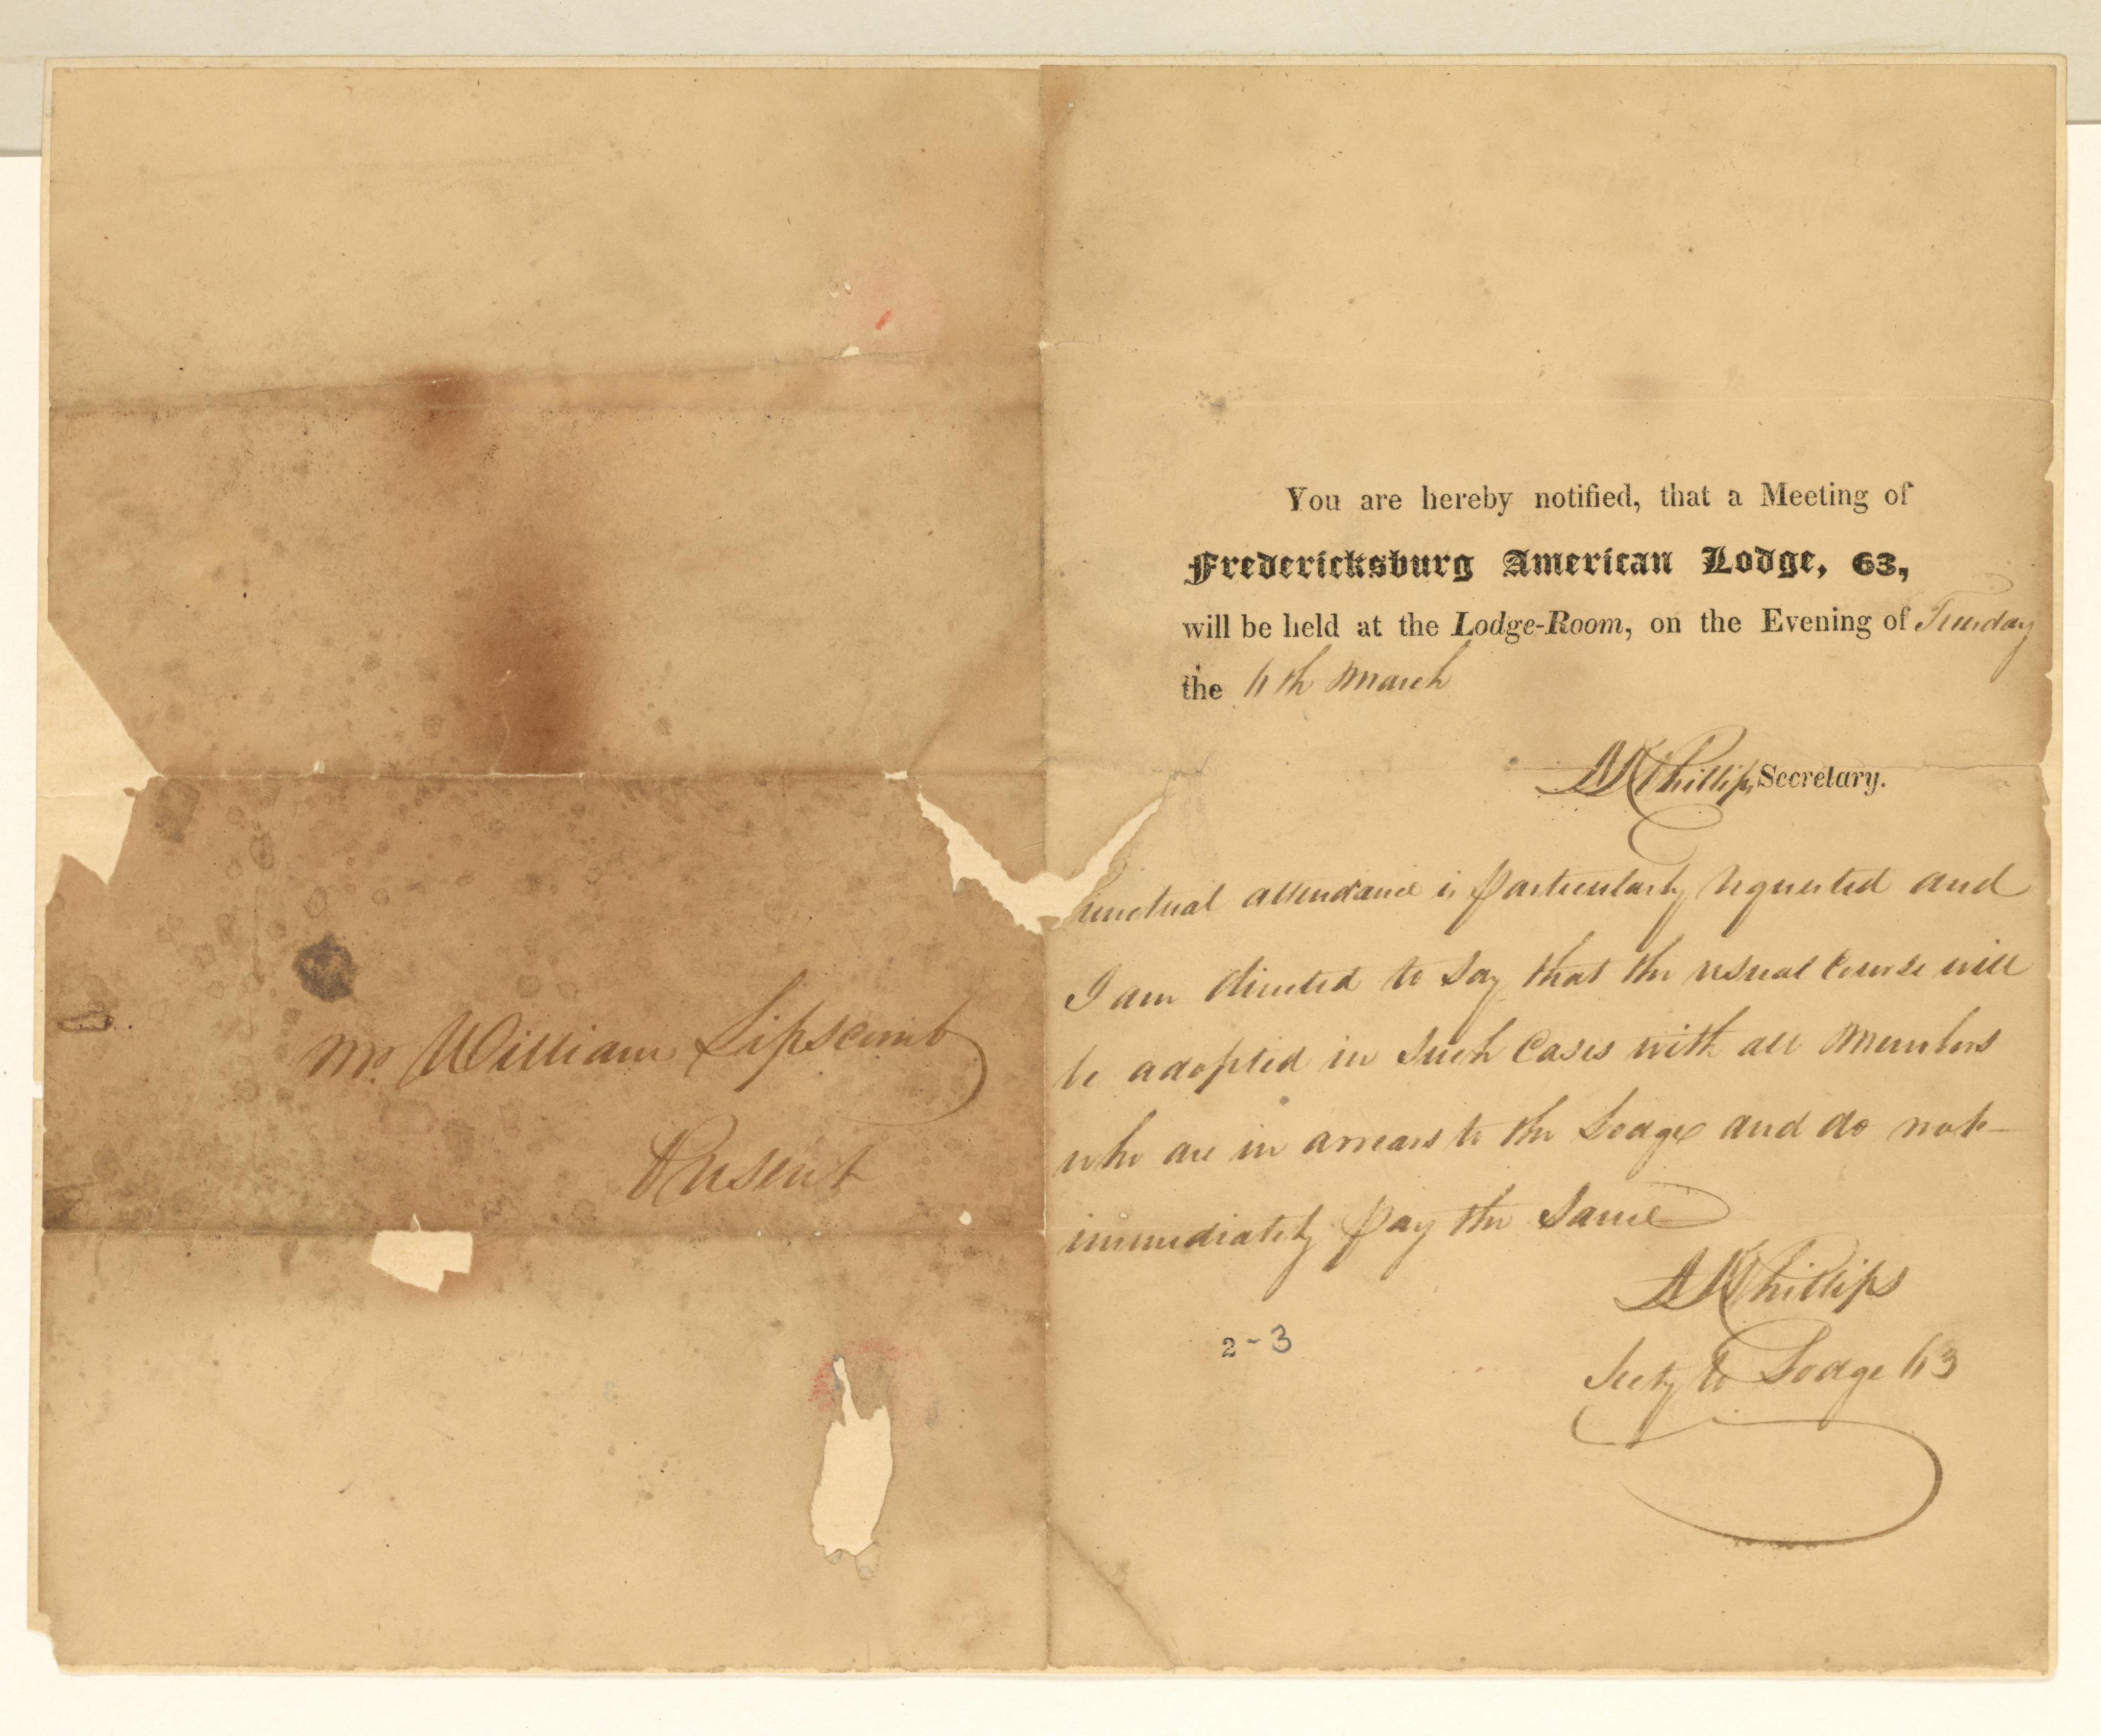 Mr. William Lipscomb
Present
You are hereby notified, that a Meeting of
Fredericksburg American Lodge, 63,
will be held at the Lodge-Room, on the Evening of Tuesday
the 6th March
Phillips, Secretary.
Punctual attendance is particularly requested and
I am directed to say that the usual course will
be adopted in such Cases with all Members
who are in arrears to the Lodge and do not
immediately pay the Same
Phillips
Secty to Lodge 63
2-3